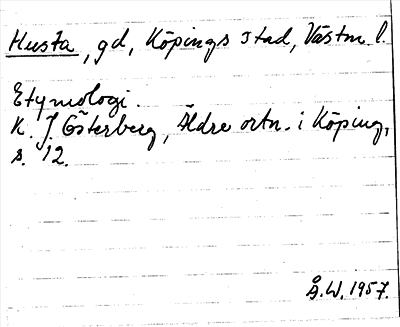 Husta, gd, Köpings stad, Västm. l.
Etymologi.
K. J. Österberg, Äldre ortn. i Köping,
s. 12.
Å.W. 1957.